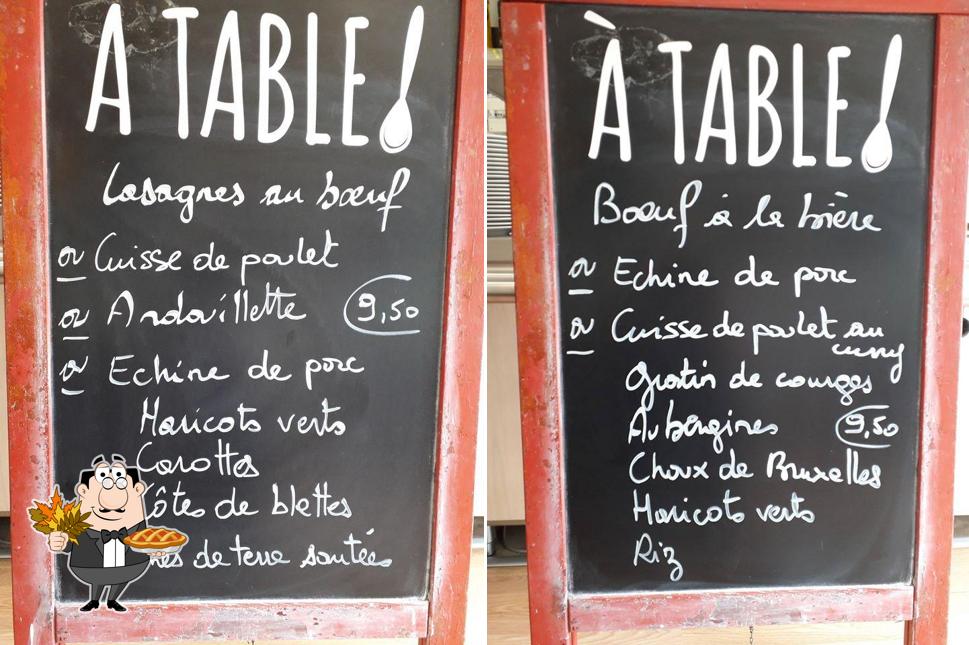 A TABLE!
Lasagnes au bœuf
ou Cuisse de poulet
ou Andouillette 9,50
ou Echine de porc
Haricots verts
Carottes
ôtes de blettes
de terre sautées
À TABLE!
Boeuf à la bière
ou Echine de porc
ou Cuisse de poulet au
curry
Gratin de courges
Aubergines 9,50
Choux de Bruxelles
Haricots verts
Riz